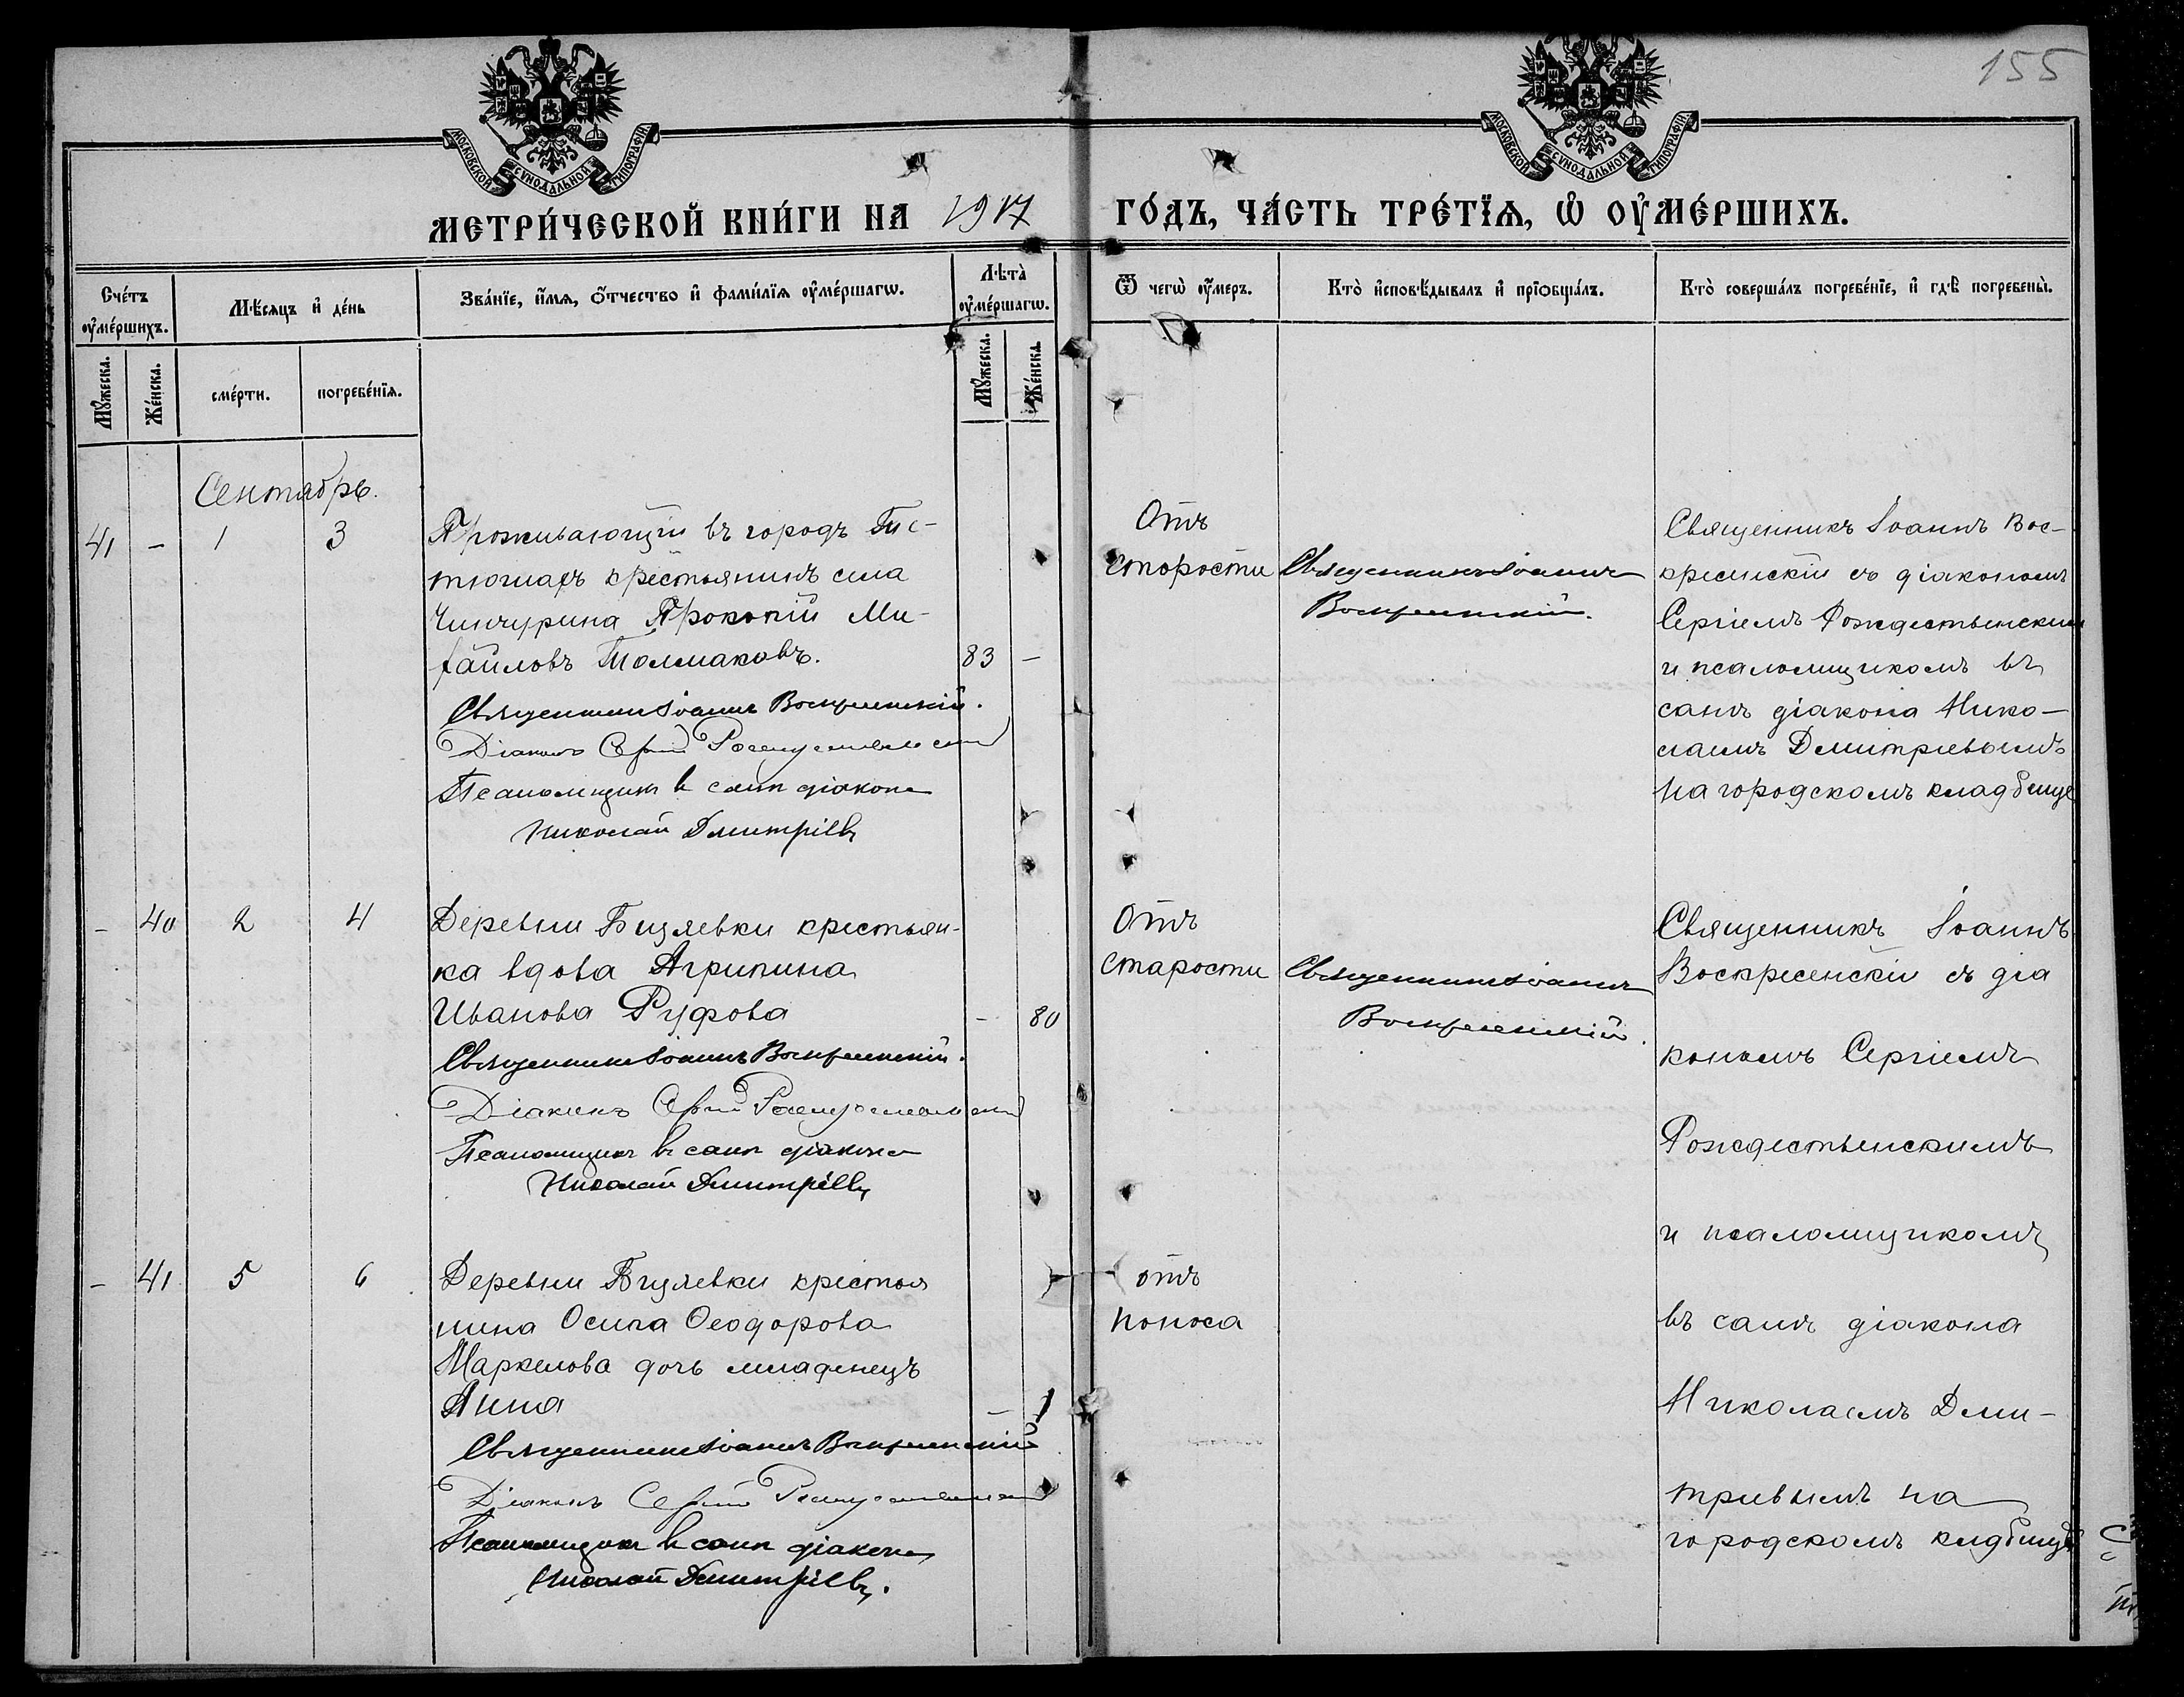 155
МОСКОВСКОЙ СѴНОДАЛЬНОЙ ТИПОГРАФІИ
МОСКОВСКОЙ СѴНОДАЛЬНОЙ ТИПОГРАФІИ
МЕТРИ́ЧЕСКОЙ КНИ́ГИ НА 1917 ГО́ДЪ, ЧА́СТЬ ТРЕ́ТЇѦ, Ѡ҆ ОУ҆МЕ́РШИХЪ.
Сче́тъ оу҆ме́ршихъ.
Мѣ́сяцъ и҆ де́нь
Зва́нїе, и҆́мѧ, ѻ҆́тчество и҆ фами́лїѧ оу҆ме́ршагѡ.
Лѣ́та оу҆ме́ршагѡ.
Ѿ чегѡ̀ оу҆́меръ.
Кто̀ и҆сповѣ́дывалъ и҆ прїѡбща́лъ.
Кто̀ соверша́лъ погребе́нїе, и҆ гдѣ̀ погребены̀.
Мꙋ́жеска.
Же́нска.
сме́рти.
погребе́нїѧ.
Мꙋ́жеска.
Же́нска.
Сентябрь.
41 - 1 3
Проживающій въ городѣ Те-
тюшахъ крестьянинъ села
Чинчурина Прокопій Ми-
хайловъ Толмаковъ.
83 -
Священникъ Іоаннъ Воскресенскій.
Діаконъ Сергій Рождественскій
Псаломщикъ въ санѣ діакона
Николай Дмитріевъ
Отъ
старости
Священникъ Іоаннъ
Воскресенскій.
Священникъ Іоаннъ Вос-
кресенскій съ діакономъ
Сергіемъ Рождественскимъ
и псаломщикомъ въ
санѣ діакона Нико-
лаемъ Дмитріевымъ
на городскомъ кладбищѣ
- 40 2 4
Деревни Бузлевки крестьян-
ка вдова Агрипина
Иванова Руфова
- 80
Священникъ Іоаннъ Воскресенскій.
Діаконъ Сергій Рождественскій
Псаломщикъ въ санѣ діакона
Николай Дмитріевъ
Отъ
старости
Священникъ Іоаннъ
Воскресенскій.
Священникъ Іоаннъ
Воскресенскій съ діа
кономъ Сергіемъ
Рождественскимъ
и псаломщикомъ
въ санѣ діакона
Николаемъ Дми-
тріевымъ на
городскомъ кладбищѣ
- 41 5 6
Деревни крестья
нина Осипа Ѳеодорова
Маркелова дочь младенецъ
Анна
- 1
Священникъ Іоаннъ Воскресенскій
Діаконъ Сергій Рождественскій
Псаломщикъ въ санѣ діакона
Николай Дмитріевъ.
отъ
поноса